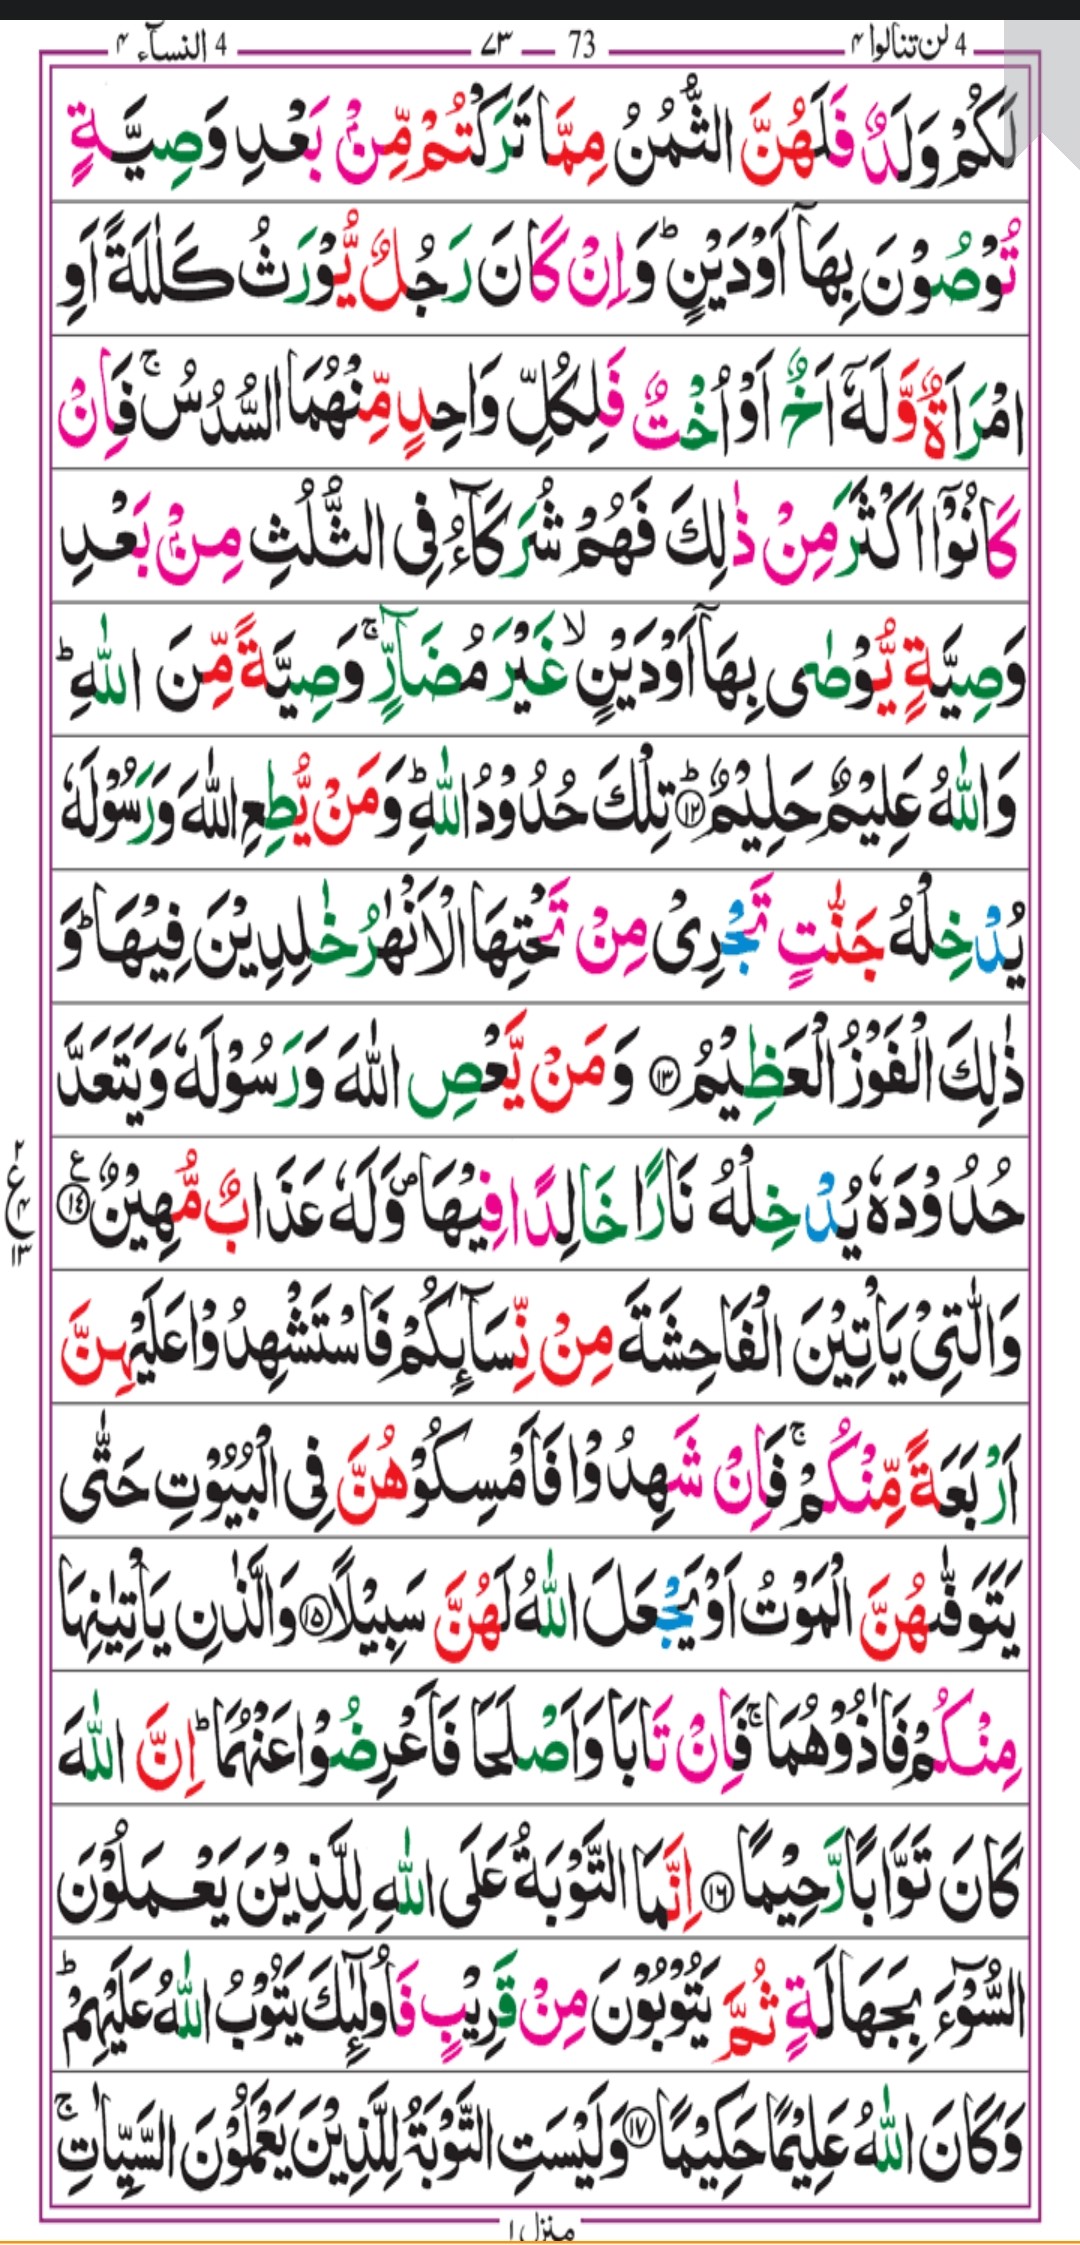 4 لن تنالوا ٤ 73 ٧٣ 4 النسآء ٤
لَكُمْ وَلَدٌ فَلَهُنَّ الثُّمُنُ مِمَّا تَرَكْتُمْ مِّنْۢ بَعْدِ وَصِيَّةٍ
تُوْصُوْنَ بِهَاۤ اَوْ دَيْنٍؕ وَاِنْ كَانَ رَجُلٌ يُّوْرَثُ كَلٰلَةً اَوِ
امْرَاَةٌ وَّلَهٗۤ اَخٌ اَوْ اُخْتٌ فَلِكُلِّ وَاحِدٍ مِّنْهُمَا السُّدُسُۚ فَاِنْ
كَانُوْۤا اَكْثَرَ مِنْ ذٰلِكَ فَهُمْ شُرَكَآءُ فِى الثُّلُثِ مِنْۢ بَعْدِ
وَصِيَّةٍ يُّوْصٰى بِهَاۤ اَوْ دَيْنٍۙ غَيْرَ مُضَآرٍّۚ وَصِيَّةً مِّنَ اللّٰهِؕ
وَاللّٰهُ عَلِيْمٌ حَلِيْمٌؕ ﴿۱۲﴾ تِلْكَ حُدُوْدُ اللّٰهِؕ وَمَنْ يُّطِعِ اللّٰهَ وَرَسُوْلَهٗ
يُدْخِلْهُ جَنّٰتٍ تَجْرِىْ مِنْ تَحْتِهَا الْاَنْهٰرُ خٰلِدِيْنَ فِيْهَاؕ وَ
ذٰلِكَ الْفَوْزُ الْعَظِيْمُ ﴿۱۳﴾ وَمَنْ يَّعْصِ اللّٰهَ وَرَسُوْلَهٗ وَيَتَعَدَّ
حُدُوْدَهٗ يُدْخِلْهُ نَارًا خَالِدًا فِيْهَا۪ وَلَهٗ عَذَابٌ مُّهِيْنٌ ﴿۱٤﴾ ع
٢ ع ٤ ١٣
وَالّٰتِىْ يَاْتِيْنَ الْفَاحِشَةَ مِنْ نِّسَآىِٕكُمْ فَاسْتَشْهِدُوْا عَلَيْهِنَّ
اَرْبَعَةً مِّنْكُمْۚ فَاِنْ شَهِدُوْا فَاَمْسِكُوْهُنَّ فِى الْبُيُوْتِ حَتّٰى
يَتَوَفّٰٮهُنَّ الْمَوْتُ اَوْ يَجْعَلَ اللّٰهُ لَهُنَّ سَبِيْلًا ﴿۱۵﴾ وَالَّذٰنِ يَاْتِيٰنِهَا
مِنْكُمْ فَاٰذُوْهُمَاۚ فَاِنْ تَابَا وَاَصْلَحَا فَاَعْرِضُوْا عَنْهُمَاؕ اِنَّ اللّٰهَ
كَانَ تَوَّابًا رَّحِيْمًا ﴿۱۶﴾ اِنَّمَا التَّوْبَةُ عَلَى اللّٰهِ لِلَّذِيْنَ يَعْمَلُوْنَ
السُّوْٓءَ بِجَهَالَةٍ ثُمَّ يَتُوْبُوْنَ مِنْ قَرِيْبٍ فَاُولٰٓىِٕكَ يَتُوْبُ اللّٰهُ عَلَيْهِمْؕ
وَكَانَ اللّٰهُ عَلِيْمًا حَكِيْمًا ﴿۱۷﴾ وَلَيْسَتِ التَّوْبَةُ لِلَّذِيْنَ يَعْمَلُوْنَ السَّيِّاٰتِۚ
منزل ١